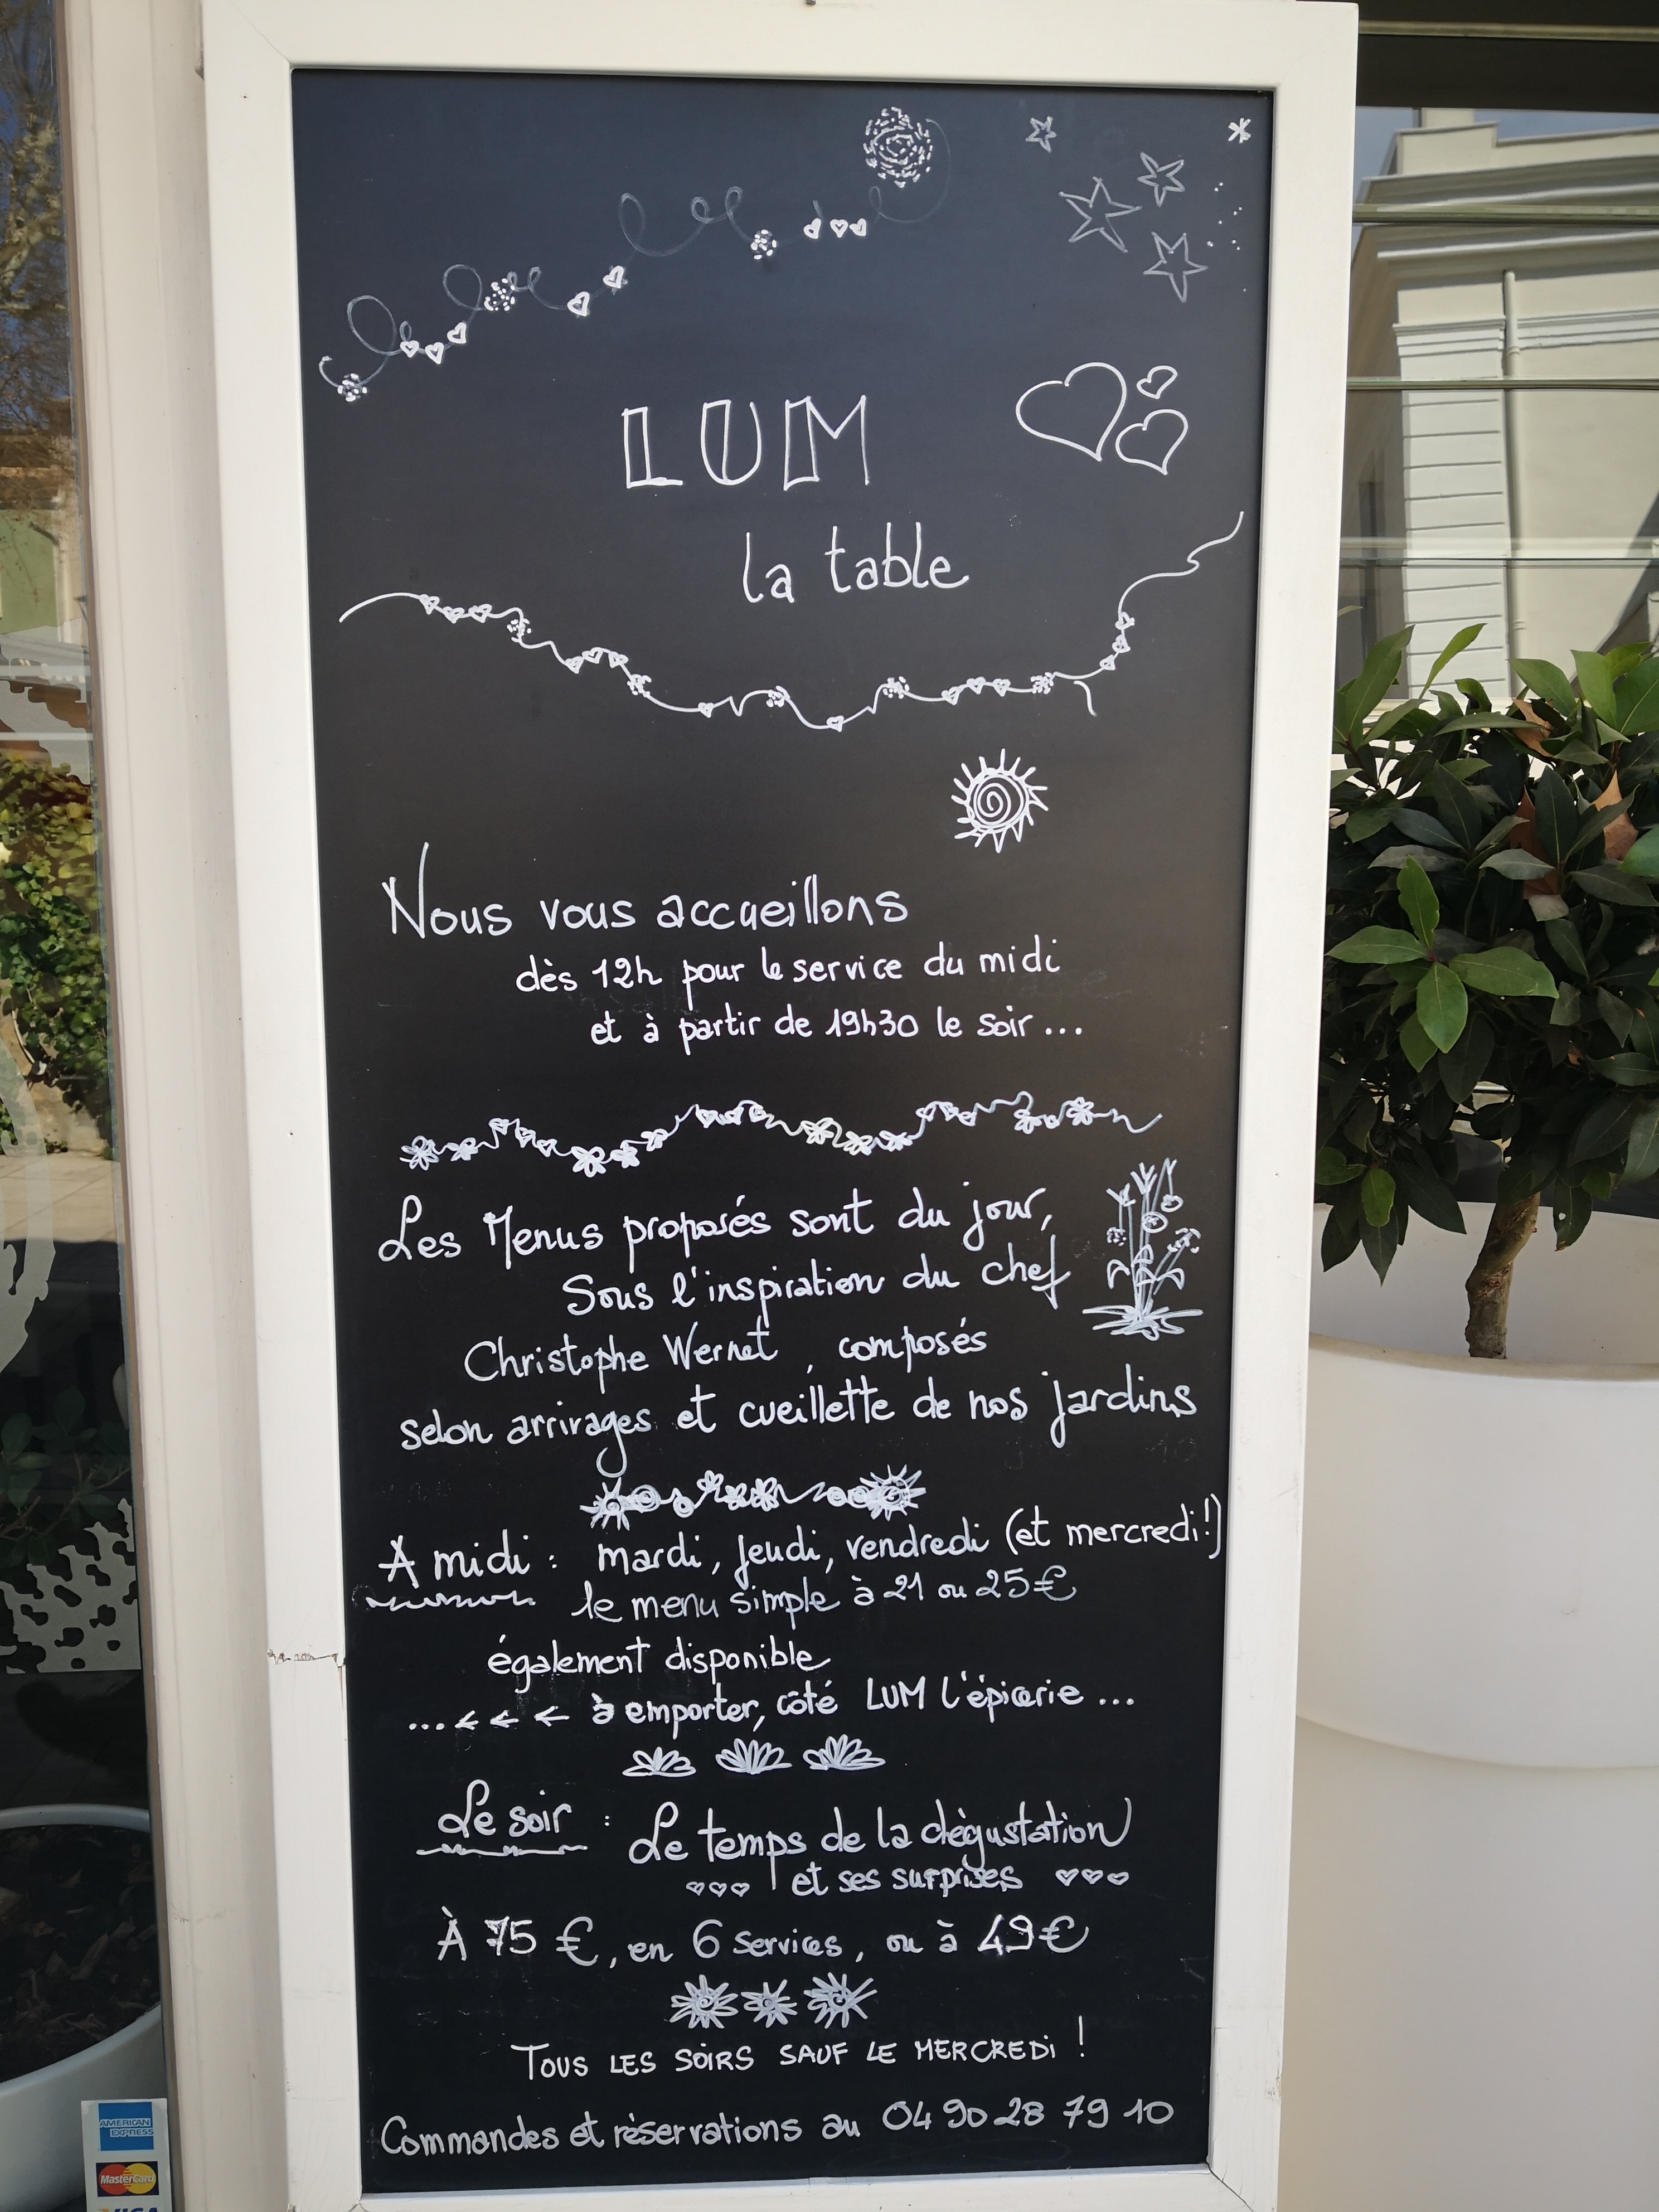 LUM
la table
Nous vous accueillons
dès 12h pour le service du midi
et à partir de 19h30 le soir...
Les Menus proposés sont du jour,
Sous l'inspiration du chef
Christophe Wernet, composés
selon arrivages et cueillette de nos jardins
A midi : mardi, jeudi, vendredi (et mercredi!)
le menu simple à 21 ou 25€
également disponible
...← ← ← à emporter, côté LUM l'épicerie...
Le soir : Le temps de la dégustation
et ses surprises
À 75 €, en 6 services, ou à 49€
TOUS LES SOIRS SAUF LE MERCREDI !
Commandes et réservations au 04 90 28 79 10
AMERICAN
EXPRESS
MasterCard
VISA